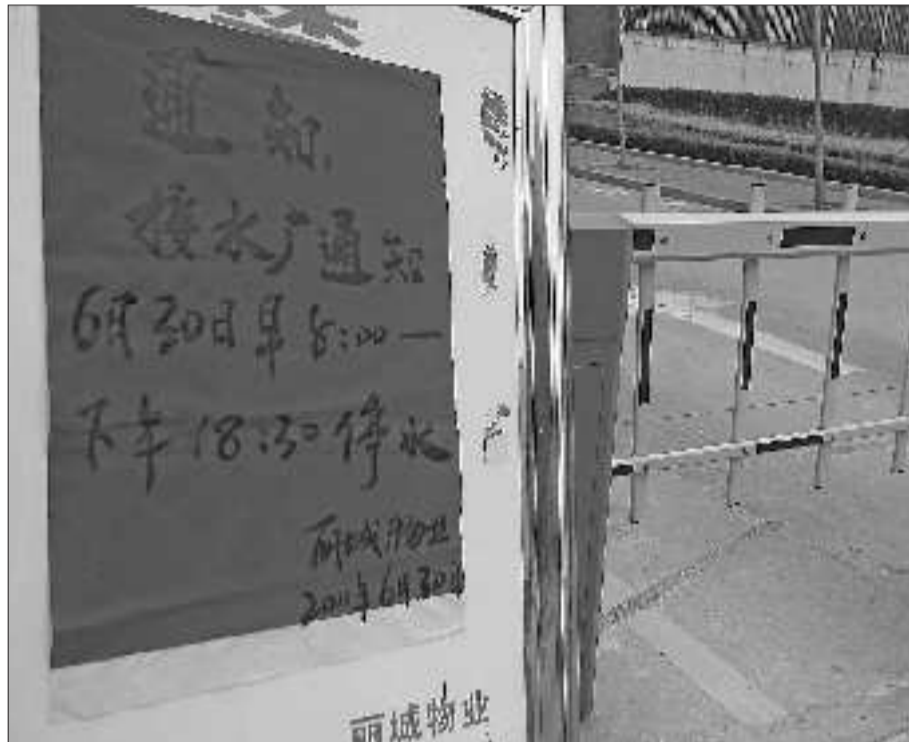 通知
接水厂通知
6月30日早8:00—
下午18:30停水
丽城物业
2011年6月30日
丽城物业